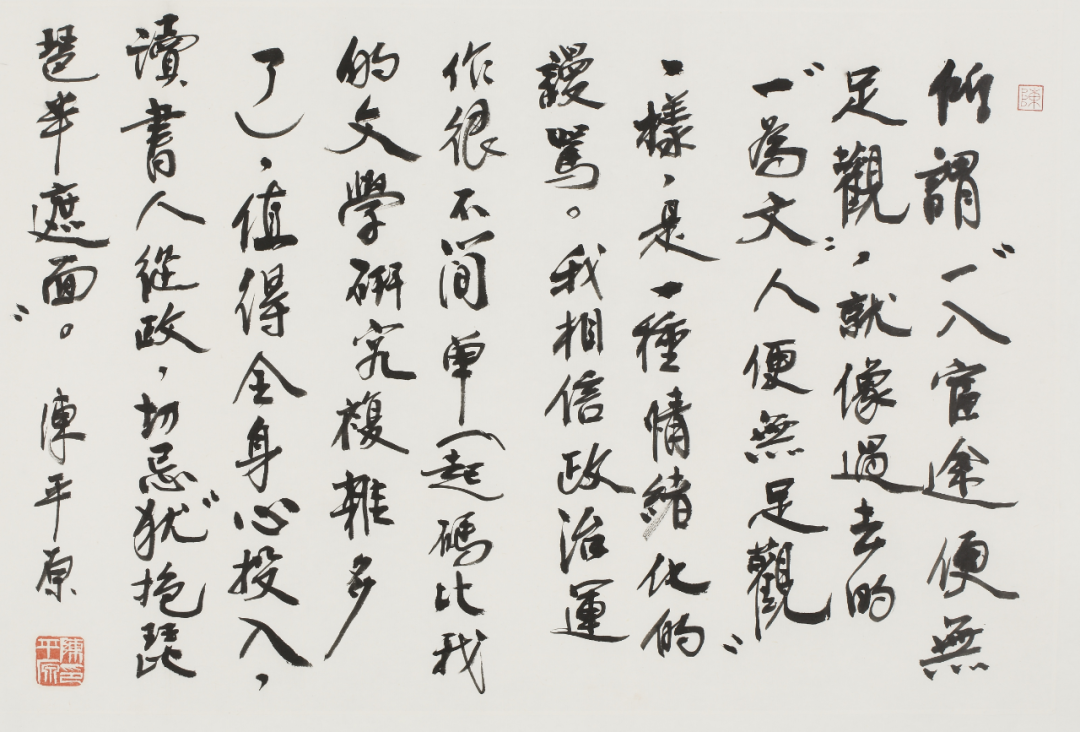 陳
所謂“一入宦途便無
足觀”，就像過去的
“一為文人便無足觀”
一樣，是一種情緒化的
謾罵。我相信政治運
作很不简单（起碼比我
的文學研究複雜多
了），值得全身心投入，
讀書人從政，切忌“犹抱琵
琶半遮面”。陳平原
陳平原印